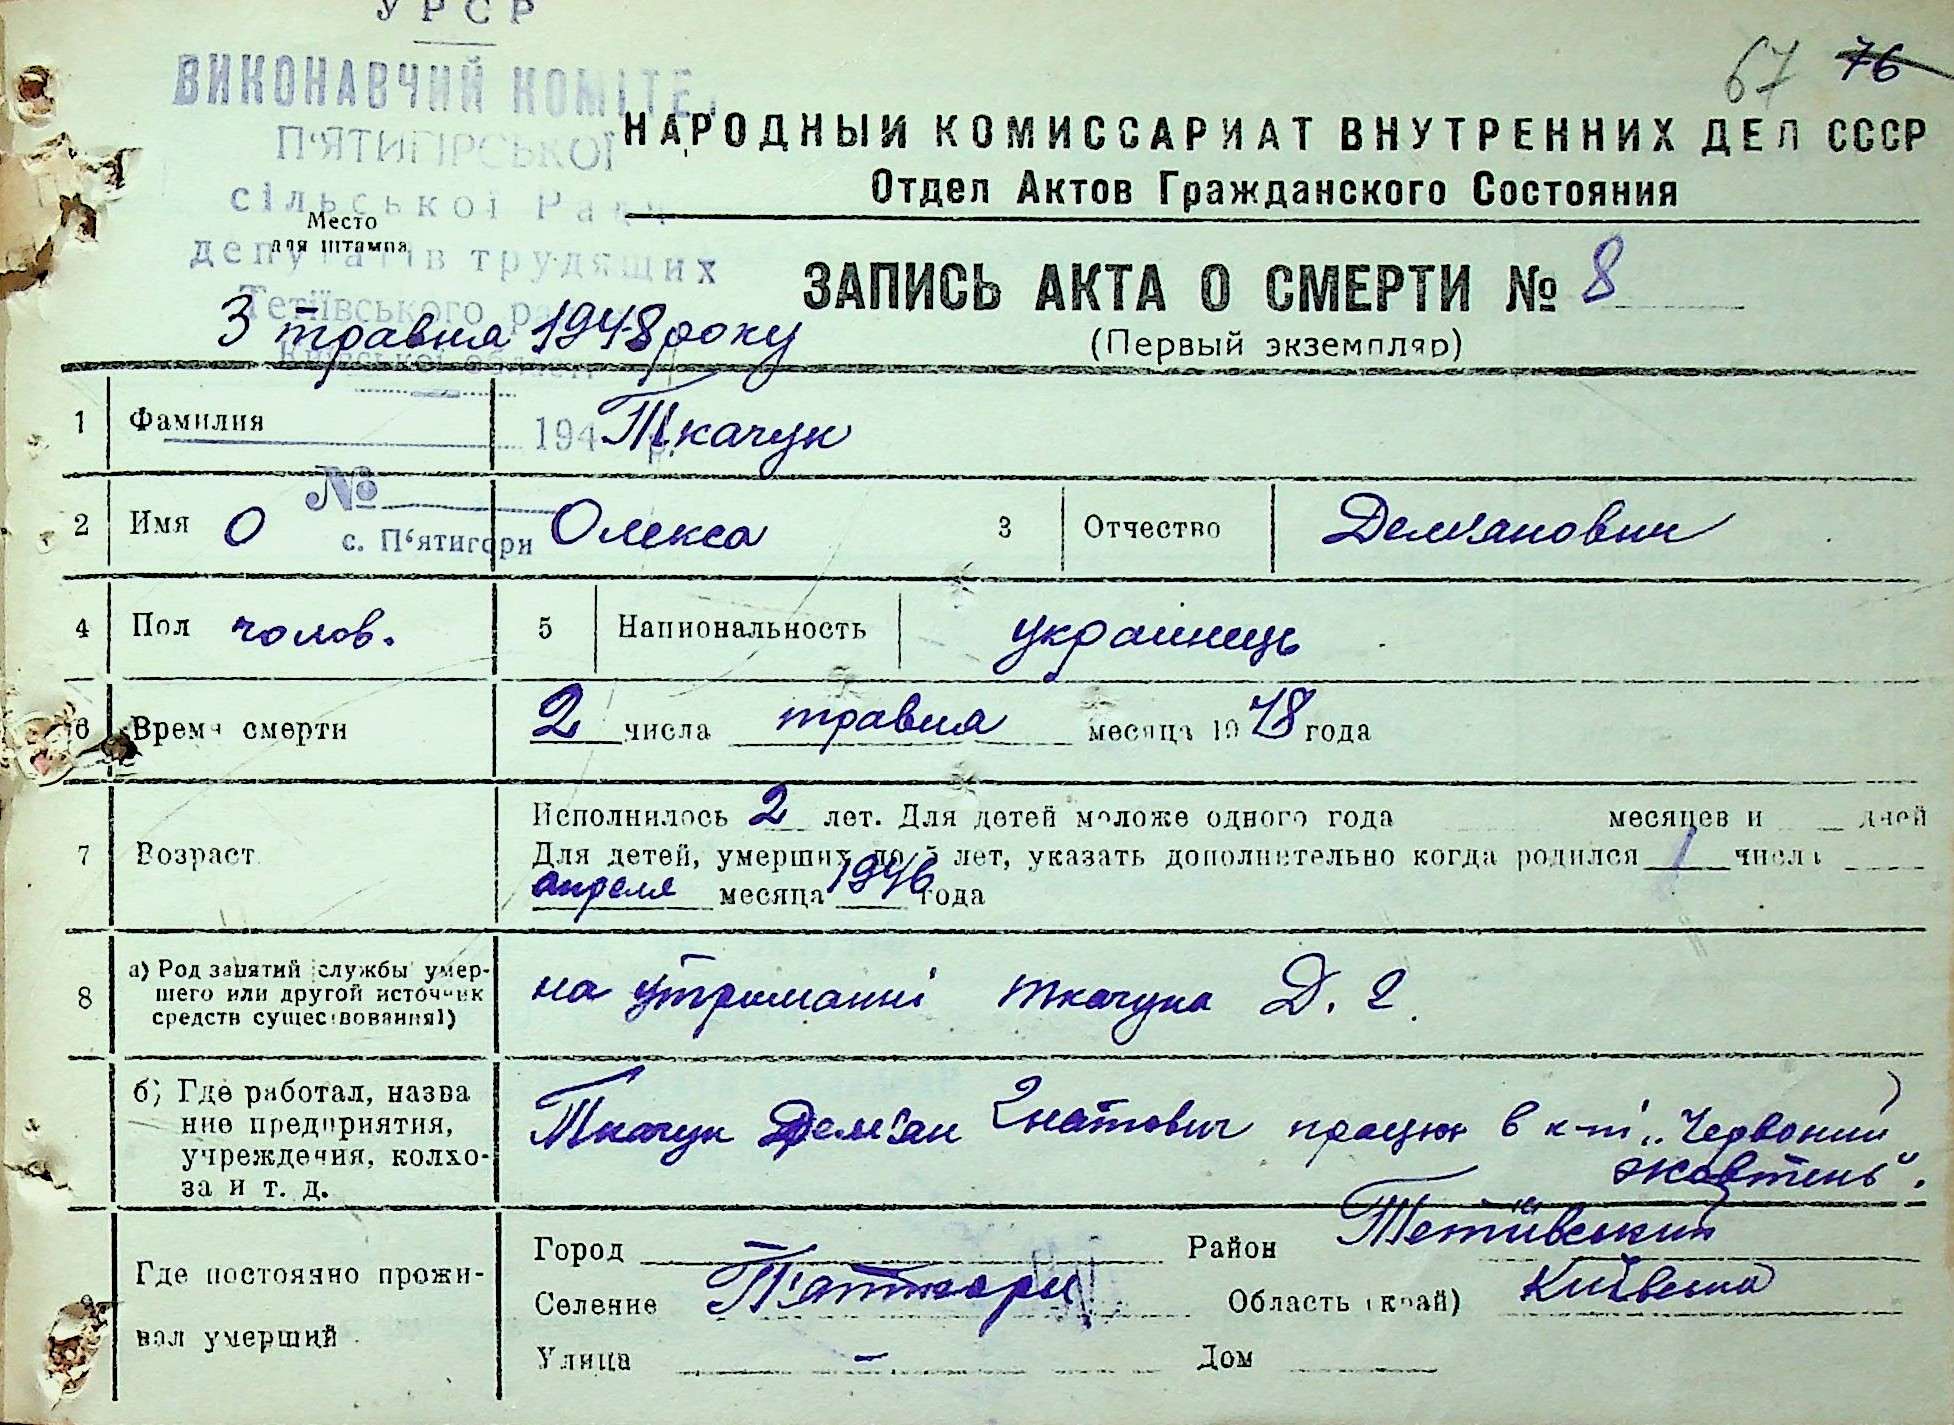 УРСР
ВИКОНАВЧИЙ КОМІТЕ
П'ЯТИГІРСЬКОЇ
сільської Ради
депутатів трудящих
Тетіївського
Київської області
194 р.
№
с. П'ятигори
Место
для штампа
67 76
НАРОДНЫЙ КОМИССАРИАТ ВНУТРЕННИХ ДЕЛ СССР
Отдел Актов Гражданского Состояния
ЗАПИСЬ АКТА О СМЕРТИ № 8
(Первый экземпляр)
3 травня 1948 року
1 Фамилия Ткачук
2 Имя О Олекса 3 Отчество Дем'янович
4 Пол чолов. 5 Национальность українець
6 Время смерти 2 числа травня месяца 1948 года
7 Возраст Исполнилось 2 лет. Для детей моложе одного года месяцев и дней
Для детей, умерших до 5 лет, указать дополнительно когда родился 1 числа
апреля месяца 1946 года
8 а) Род занятий службы умер-
шего или другой источник
средств существования1)
на утриманні Ткачука Д. Г.
б) Где работал, назва
ние предприятия,
учреждения, колхо-
за и т. д.
Ткачук Дем'ян Гнатович працює в к-пі „Червоний
жовтень".
Где постоянно прожи-
вал умерший
Город — Район Тетіївський
Селение П'ятигори Область (край) Київська
Улица — Дом